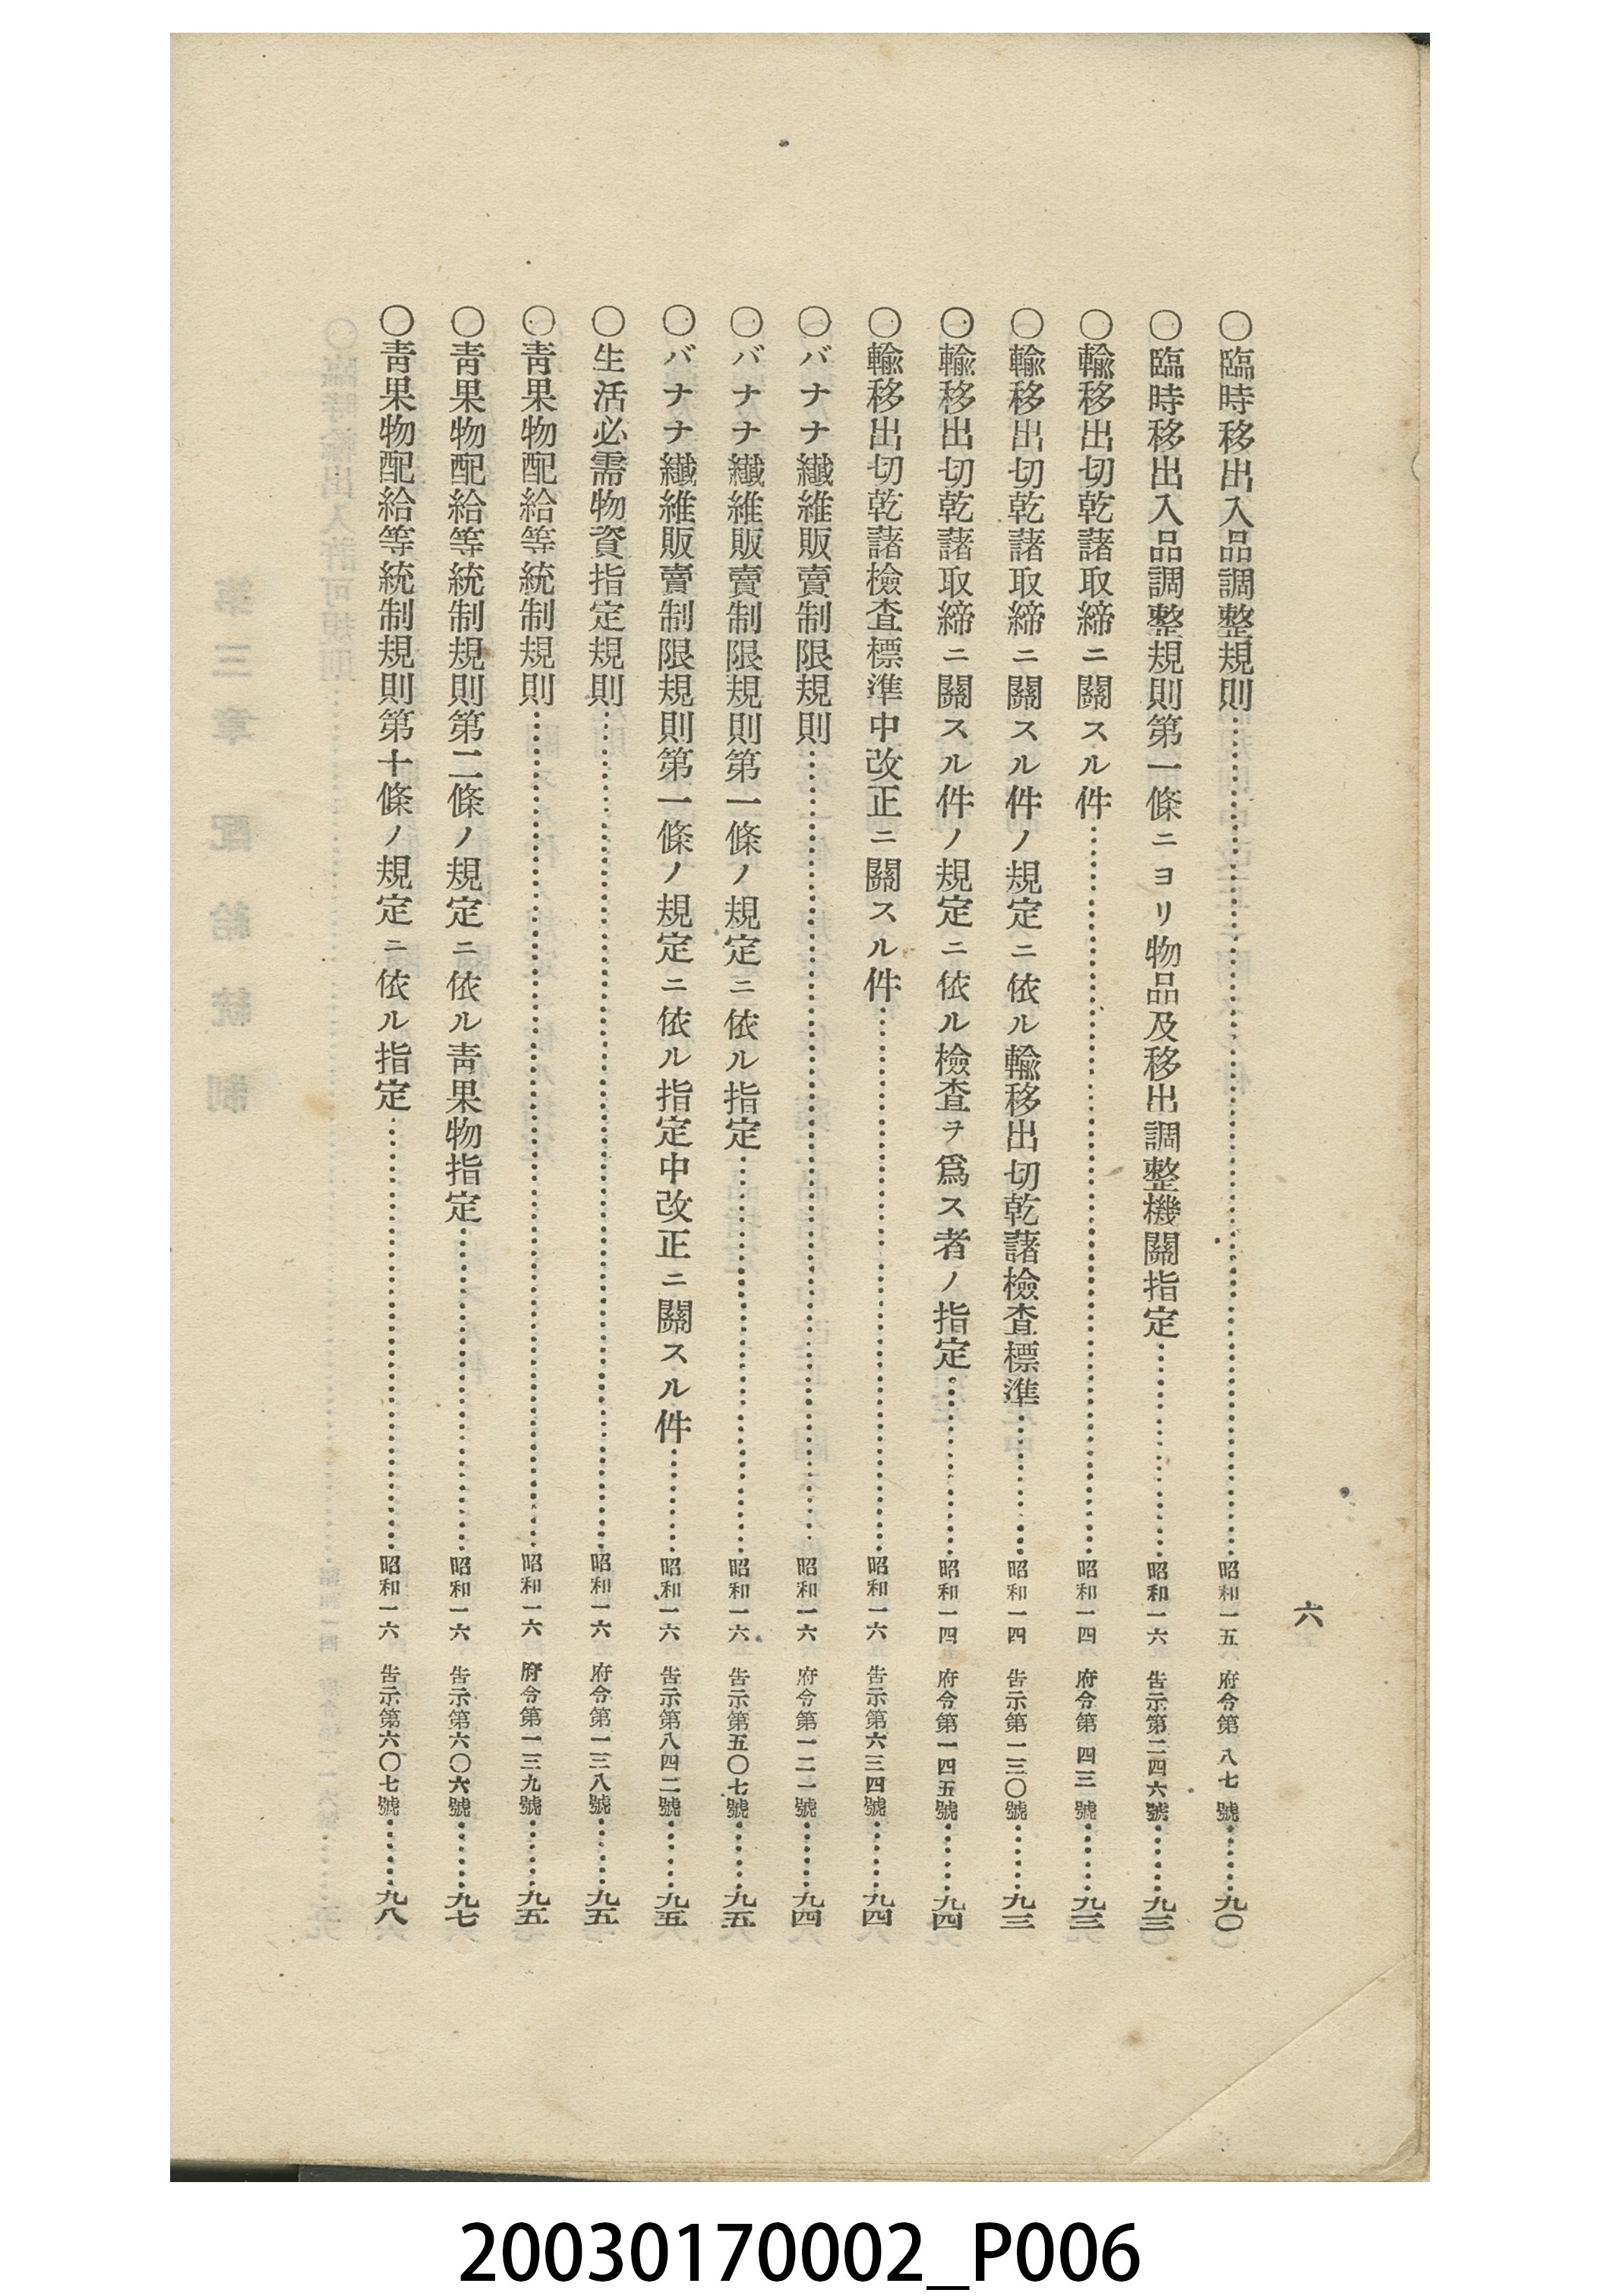 六
〇臨時移出入品調整規則……昭和一五 府令第八七號……九〇
〇臨時移出入品調整規則第一條ニヨリ物品及移出調整機關指定……昭和一六 告示第二四六號……九三
〇輸移出切乾藷取締ニ關スル件……昭和一四 府令第四三號……九三
〇輸移出切乾藷取締ニ關スル件ノ規定ニ依ル輸移出切乾藷檢査標準……昭和一四 告示第一三〇號……九三
〇輸移出切乾藷取締ニ關スル件ノ規定ニ依ル檢査ヲ爲ス者ノ指定……昭和一四 府令第一四五號……九四
〇輸移出切乾藷檢査標準中改正ニ關スル件……昭和一六 告示第六三四號……九四
〇バナナ纎維販賣制限規則……昭和一六 府令第一二一號……九四
〇バナナ纎維販賣制限規則第一條ノ規定ニ依ル指定……昭和一六 告示第五〇七號……九五
〇バナナ纎維販賣制限規則第一條ノ規定ニ依ル指定中改正ニ關スル件……昭和一六 告示第八四二號……九五
〇生活必需物資指定規則……昭和一六 府令第一三八號……九五
〇靑果物配給等統制規則……昭和一六 府令第一三九號……九五
〇靑果物配給等統制規則第二條ノ規定ニ依ル靑果物指定……昭和一六 告示第六〇六號……九七
〇靑果物配給等統制規則第十條ノ規定ニ依ル指定……昭和一六 告示第六〇七號……九八
20030170002_P006